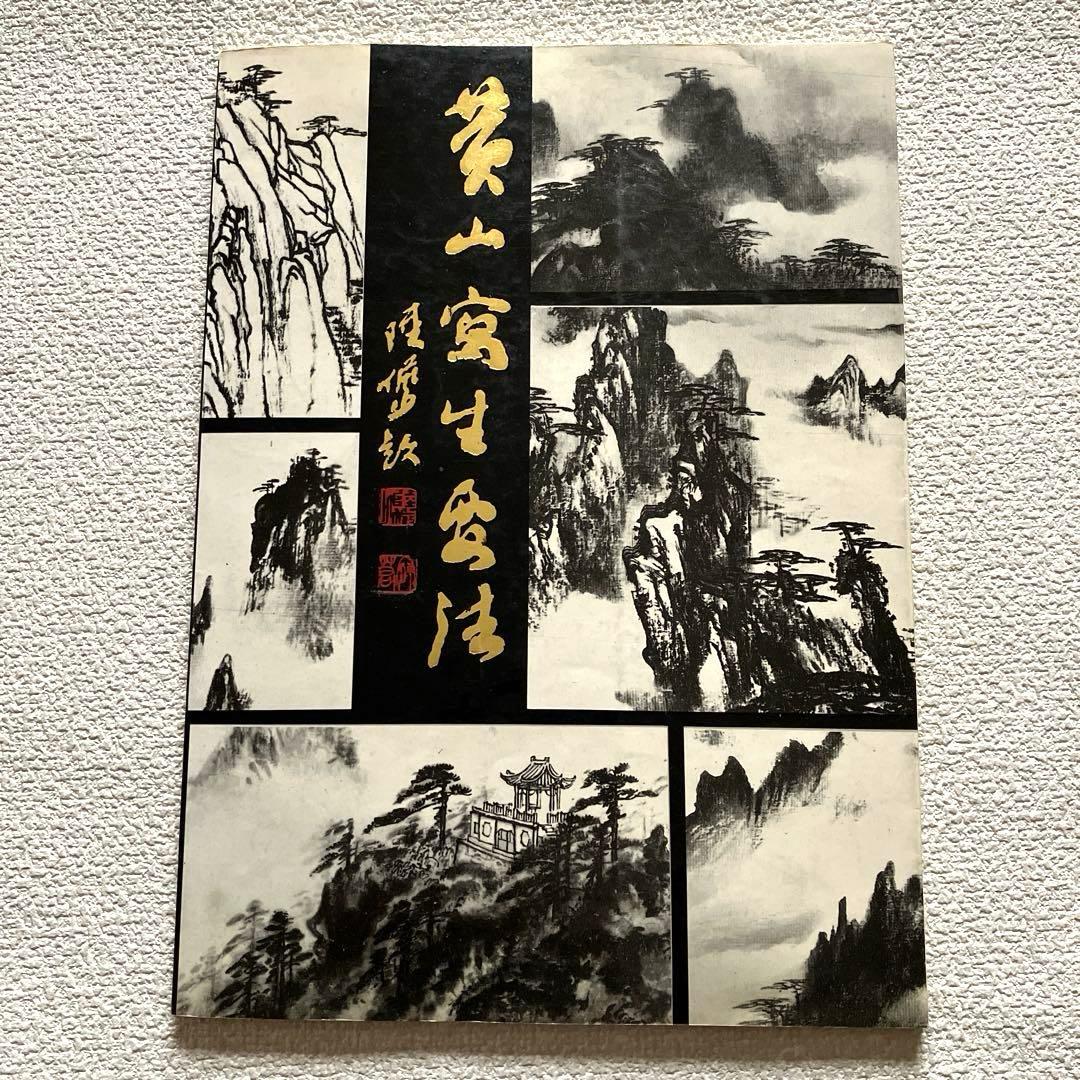 黄山寫生要法
陸儼少題